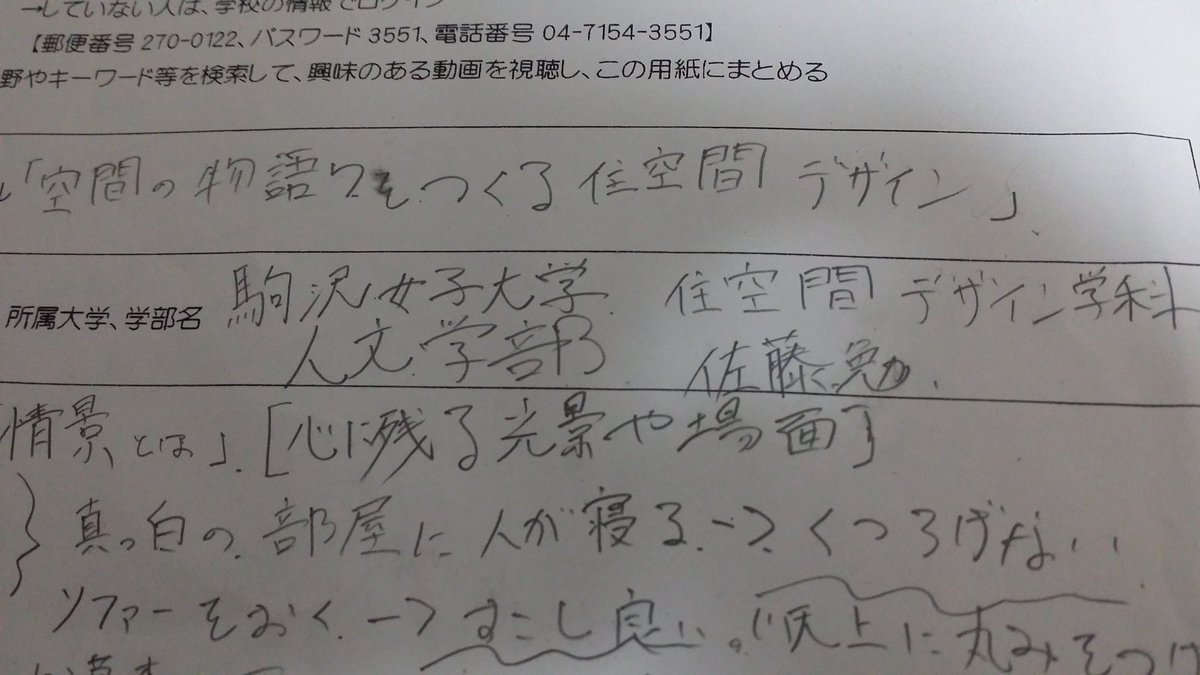 →していない人は、学校の情報でログイン
【郵便番号 270-0122、パスワード 3551、電話番号 04-7154-3551】
野やキーワード等を検索して、興味のある動画を視聴し、この用紙にまとめる
「空間の物語りをつくる 住空間 デザイン」
所属大学、学部名 駒沢女子大学 住空間 デザイン学科
人文学部 佐藤勉
「情景とは」[心に残る光景や場面]
真っ白の部屋に人が寝る→くつろげない
ソファーをおく→すこし良い。天上に丸みをつけ